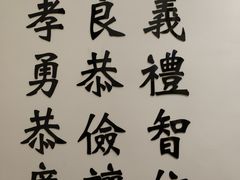 義禮智
良恭儉讓
孝勇恭